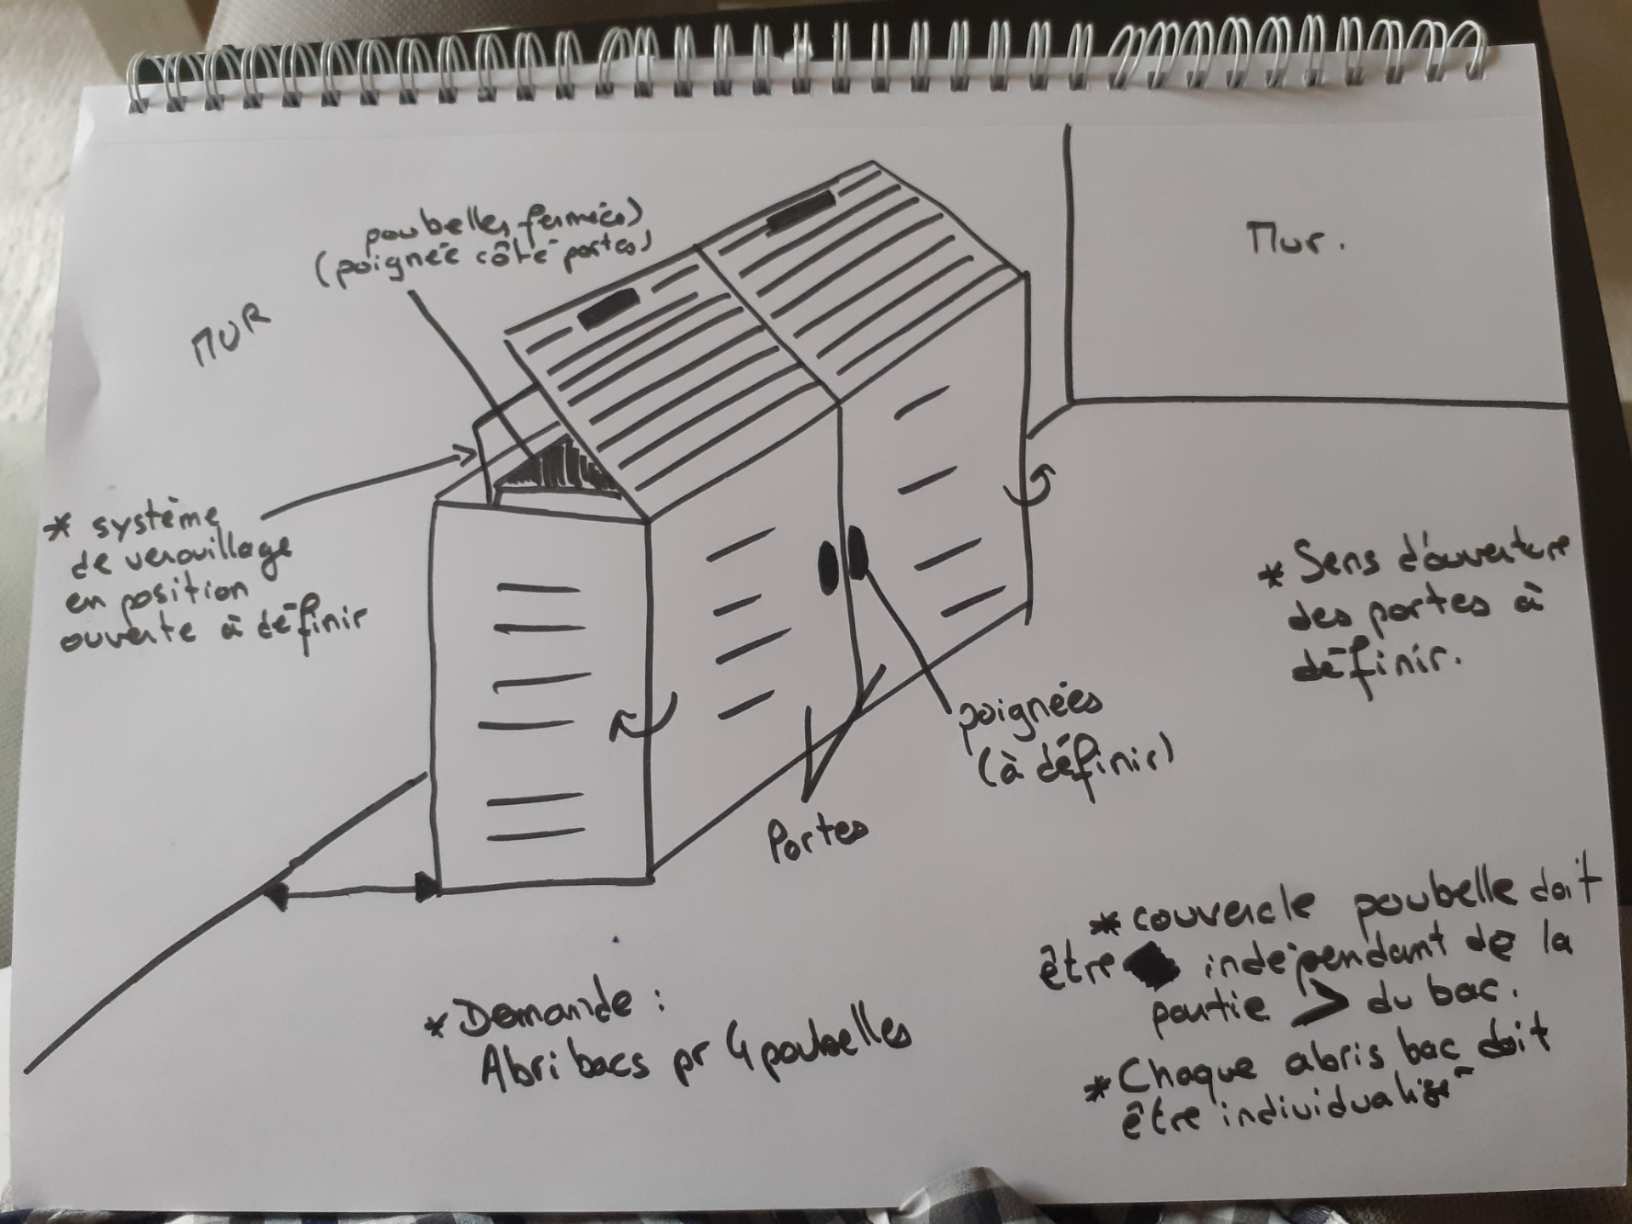 poubelles fermées)
(poignée côté portes)
MUR
Mur.
* système
de verouillage
en position
ouverte à définir
* Sens d'ouverture
des portes à
définir.
poignées
(à définir)
Portes
* couvercle poubelle doit
être indépendant de la
partie > du bac.
* Chaque abris bac doit
être individualisé
* Demande :
Abri bacs pr 4 poubelles